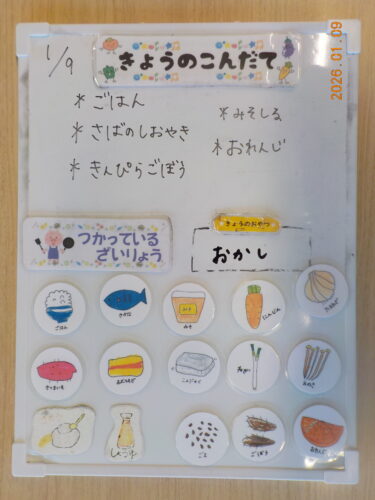 1/9
きょうのこんだて
2026.01.09
*ごはん
*さばのしおやき
*きんぴらごぼう
*みそしる
*おれんじ
つかっている
ざいりょう
きょうのおやつ
おかし
ごはん
さかな
みそ
にんじん
たまねぎ
さつまいも
あぶらあげ
こんにゃく
ねぎ
えのき
しょうゆ
ごま
ごぼう
おれんじ